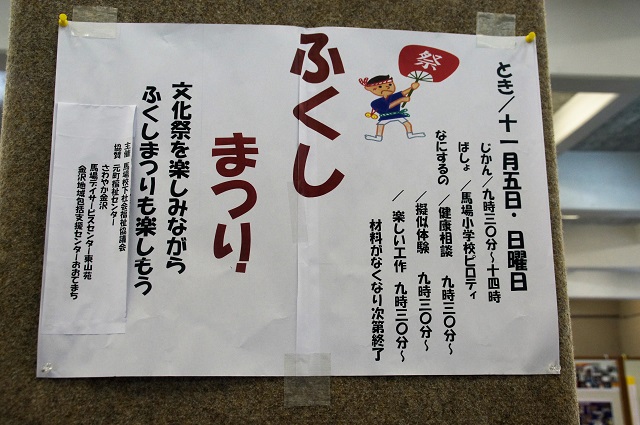 とき／十一月五日・日曜日
じかん／九時三〇分～十四時
ばしょ／馬場小学校ピロティ
なにするの／健康相談 九時三〇分～
／擬似体験 九時三〇分～
／楽しい工作 九時三〇分～
材料がなくなり次第終了
祭
ふくし
まつり
文化祭を楽しみながら
ふくしまつりも楽しもう
主催 馬場校下社会福祉協議会
協賛 元町福祉センター
さわやか金沢
馬場デイサービスセンター東山苑
金沢地域包括支援センターおおてまち